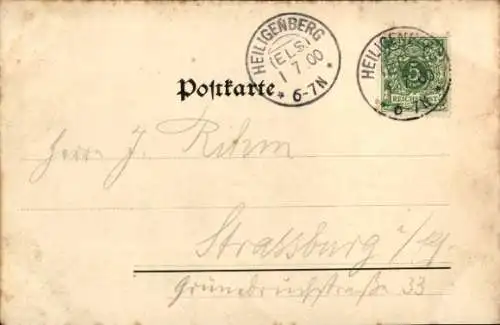 HEILIGENBERG
(ELS.)
1 7 00
* 6-7N *
HEILIGEN
5
REICHSPOST
* 6-7N
Postkarte
Herrn J. Rihm
Strassburg i/E.
Grünebruchstraße 33